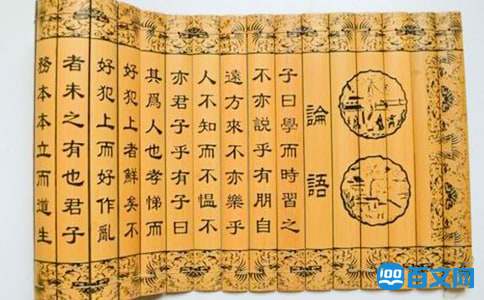 論語
子曰學而時習之
不亦說乎有朋自
遠方來不亦樂乎
人不知而不慍不
亦君子乎有子曰
其爲人也孝悌而
好犯上者鮮矣不
好犯上而好作亂
者未之有也君子
務本本立而道生
100 百文网